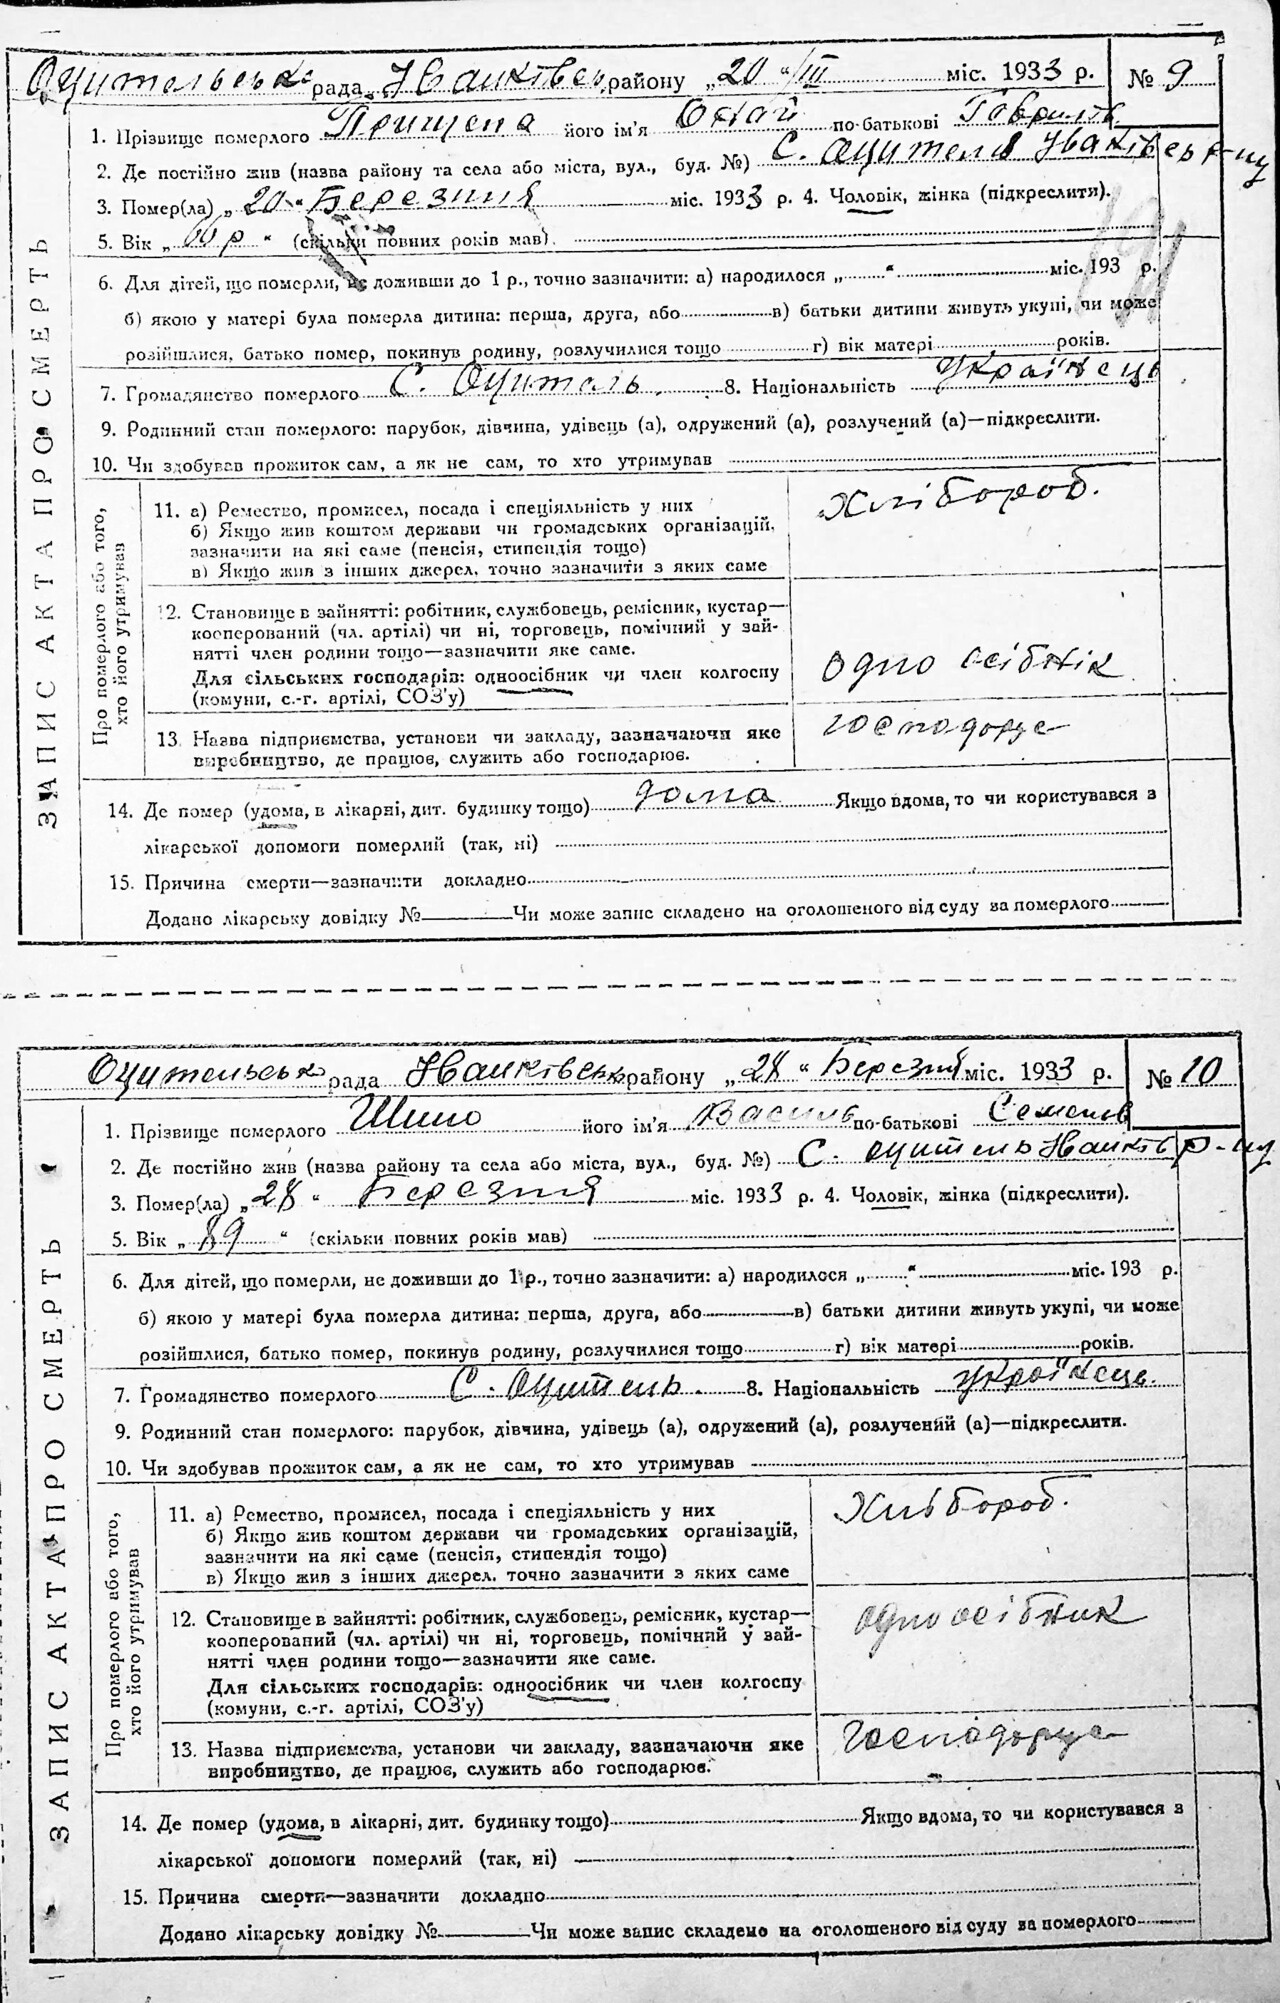 Оцительська рада Іванківськ району „20 “ III міс. 1933 р. № 9
1. Прізвище померлого Прищепа його ім'я по-батькові Гаврилов.
2. Де постійно жив (назва району та села або міста, вул., буд. №) С. Оцителя Іванківськ р-ну
3. Помер(ла) „ 20 “ Березння міс. 1933 р. 4. Чоловік, жінка (підкреслити).
5. Вік „ р “ (скільки повних років мав)
6. Для дітей, що померли, не доживши до 1 р., точно зазначити: а) народилося „ “ міс. 193 р.
б) якою у матері була померла дитина: перша, друга, або в) батьки дитини живуть укупі, чи може
розійшлися, батько помер, покинув родину, розлучилися тощо г) вік матері років.
7. Громадянство померлого С. Оцитель. 8. Національність Українець
9. Родинний стан померлого: парубок, дівчина, удівець (а), одружений (а), розлучений (а)—підкреслити.
10. Чи здобував прожиток сам, а як не сам, то хто утримував
ЗАПИС АКТА ПРО СМЕРТЬ
Про померлого або того,
хто його утримував
11. а) Ремество, промисел, посада і спеціяльність у них Хлібороб.
б) Якщо жив коштом держави чи громадських організацій,
зазначити на які саме (пенсія, стипендія тощо)
в) Якщо жив з інших джерел, точно зазначити з яких саме
12. Становище в зайнятті: робітник, службовець, ремісник, кустар—
кооперований (чл. артілі) чи ні, торговець, помічний у зай-
нятті член родини тощо—зазначити яке саме.
Для сільських господарів: одноосібник чи член колгоспу одно осібнік
(комуни, с.-г. артілі, СОЗ'у)
13. Назва підприємства, установи чи закладу, зазначаючи яке господорує
виробництво, де працює, служить або господарює.
14. Де помер (удома, в лікарні, дит. будинку тощо) дома Якщо вдома, то чи користувався з
лікарської допомоги померлий (так, ні)
15. Причина смерти—зазначити докладно
Додано лікарську довідку № Чи може запис складено на оголошеного від суду за померлого
Оцительська рада Іванківськ району „28 “ Березня міс. 1933 р. № 10
1. Прізвище померлого Шило його ім'я Василь по-батькові Семенов
2. Де постійно жив (назва району та села або міста, вул., буд. №) С. Оцитель Іванків р-ну
3. Помер(ла) „28 “ Березня міс. 1933 р. 4. Чоловік, жінка (підкреслити).
5. Вік „ 89 “ (скільки повних років мав)
6. Для дітей, що померли, не доживши до 1 р., точно зазначити: а) народилося „ “ міс. 193 р.
б) якою у матері була померла дитина: перша, друга, або в) батьки дитини живуть укупі, чи може
розійшлися, батько помер, покинув родину, розлучилися тощо г) вік матері років.
7. Громадянство померлого С. Оцитель. 8. Національність Українець.
9. Родинний стан померлого: парубок, дівчина, удівець (а), одружений (а), розлучений (а)—підкреслити.
10. Чи здобував прожиток сам, а як не сам, то хто утримував
ЗАПИС АКТА ПРО СМЕРТЬ
Про померлого або того,
хто його утримував
11. а) Ремество, промисел, посада і спеціяльність у них Хлібороб.
б) Якщо жив коштом держави чи громадських організацій,
зазначити на які саме (пенсія, стипендія тощо)
в) Якщо жив з інших джерел, точно зазначити з яких саме
12. Становище в зайнятті: робітник, службовець, ремісник, кустар— одноосібник
кооперований (чл. артілі) чи ні, торговець, помічний у зай-
нятті член родини тощо—зазначити яке саме.
Для сільських господарів: одноосібник чи член колгоспу
(комуни, с.-г. артілі, СОЗ'у)
13. Назва підприємства, установи чи закладу, зазначаючи яке господорує
виробництво, де працює, служить або господарює.
14. Де помер (удома, в лікарні, дит. будинку тощо) Якщо вдома, то чи користувався з
лікарської допомоги померлий (так, ні)
15. Причина смерти—зазначити докладно
Додано лікарську довідку № Чи може запис складено на оголошеного від суду за померлого